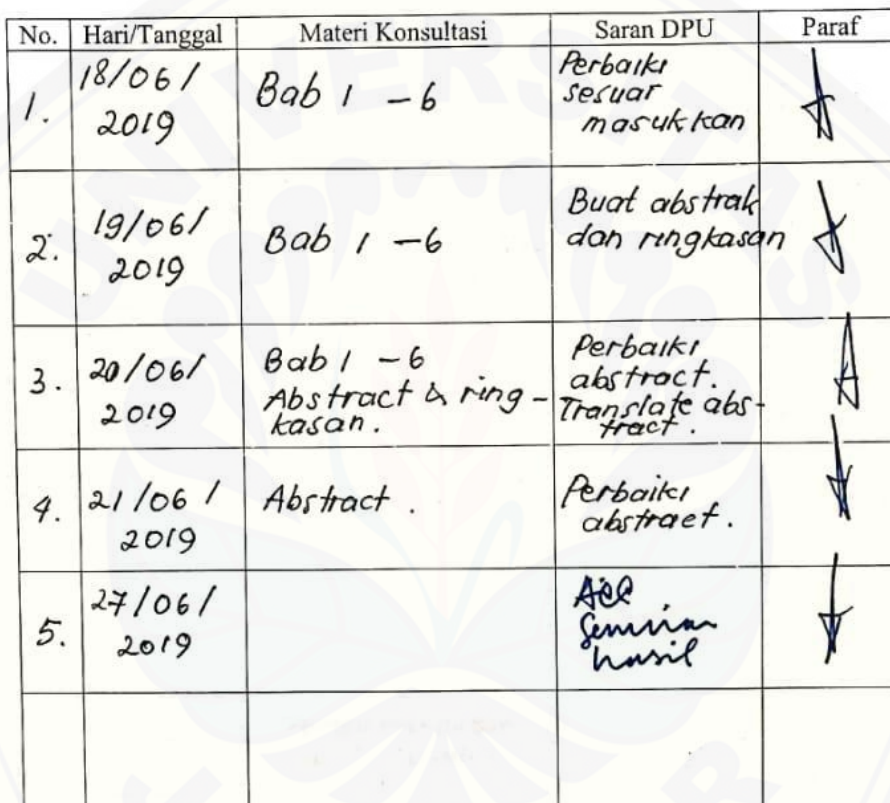 No. Hari/Tanggal Materi Konsultasi Saran DPU Paraf
1. 18/06/2019 Bab 1 - 6 Perbaiki
sesuai
masukkan
2. 19/06/2019 Bab 1 - 6 Buat abstrak
dan ringkasan
3. 20/06/2019 Bab 1 - 6
Abstract & ring-
kasan.
Perbaiki
abstract.
Translate abs-
tract.
4. 21/06/2019 Abstract. Perbaiki
abstract.
5. 27/06/2019 Acc
Seminar
hasil
UNIVERSITAS